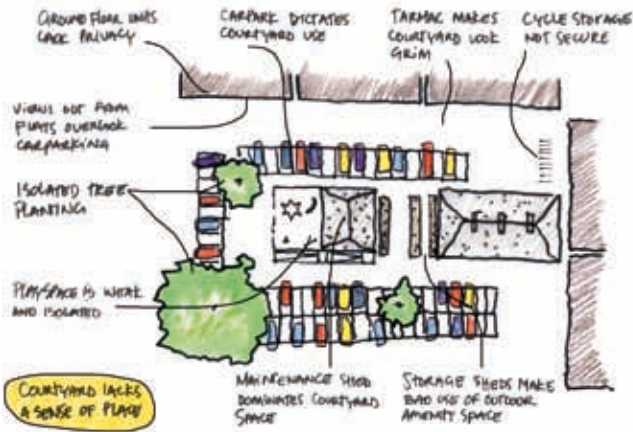 GROUND FLOOR UNITS
LACK PRIVACY
CARPARK DICTATES
COURTYARD USE
TARMAC MAKES
COURTYARD LOOK
GRIM
CYCLE STORAGE
NOT SECURE
VIEWS OUT FROM
FLATS OVERLOOK
CARPARKING
ISOLATED TREE
PLANTING
PLAYSPACE IS WEAK
AND ISOLATED
COURTYARD LACKS
A SENSE OF PLACE
MAINTENANCE SHED
DOMINATES COURTYARD
SPACE
STORAGE SHEDS MAKE
BAD USE OF OUTDOOR
AMENITY SPACE